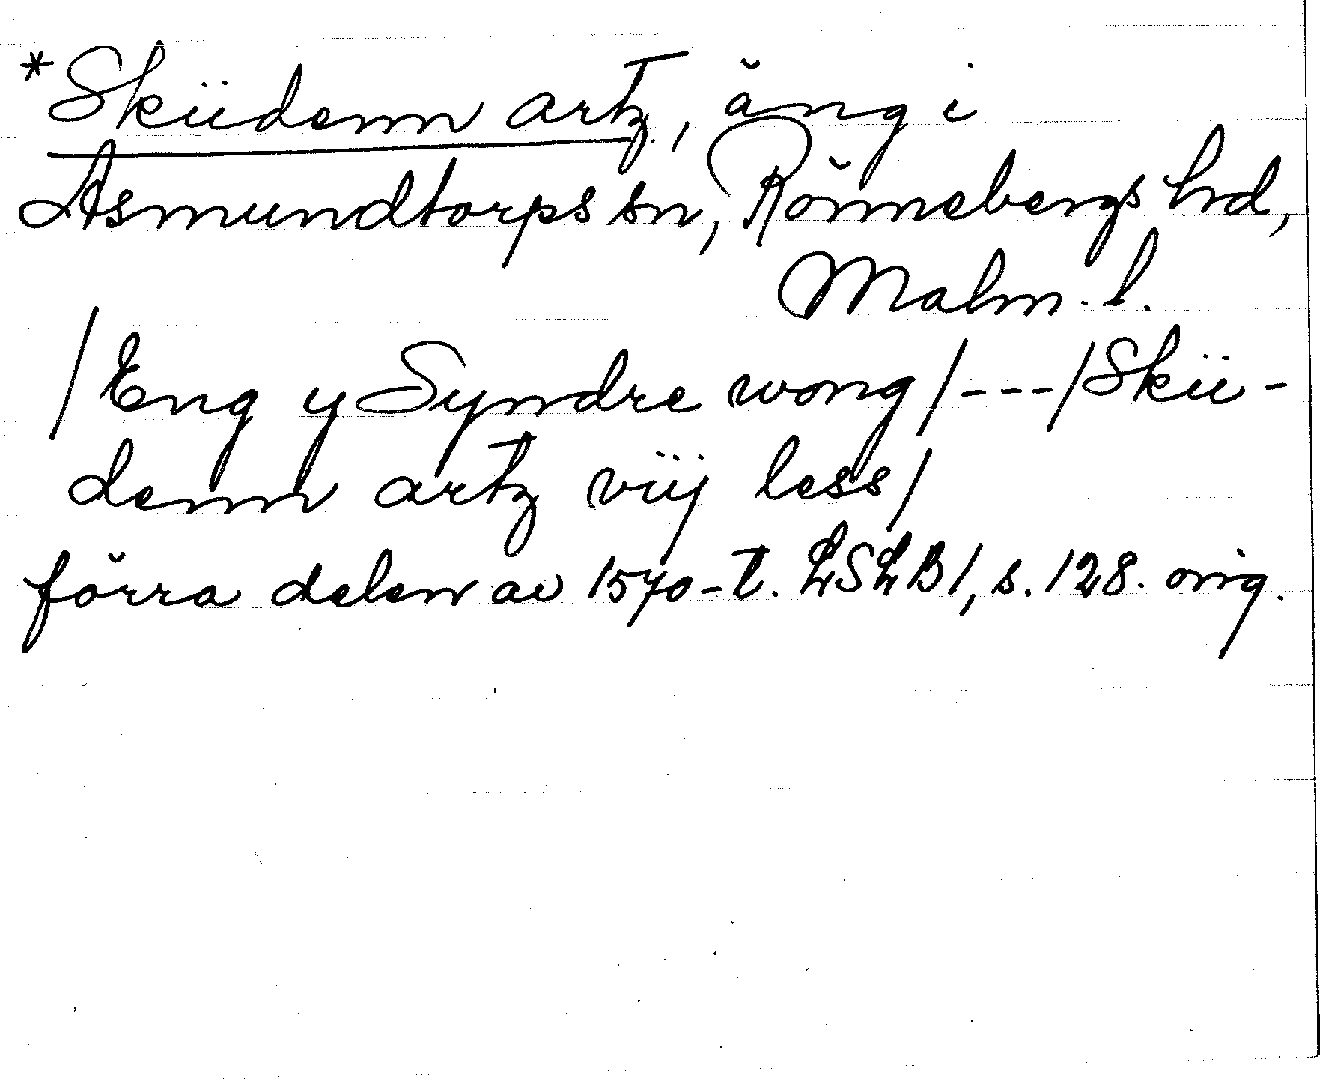 *Sküdenn artz, äng i
Asmundtorps sn, Rönnebergs hrd,
Malm. l.
/Eng y Syndre wong/---/Skü-
denn artz vij less/
förra delen av 1570-t. LSLB1, s. 128. orig.